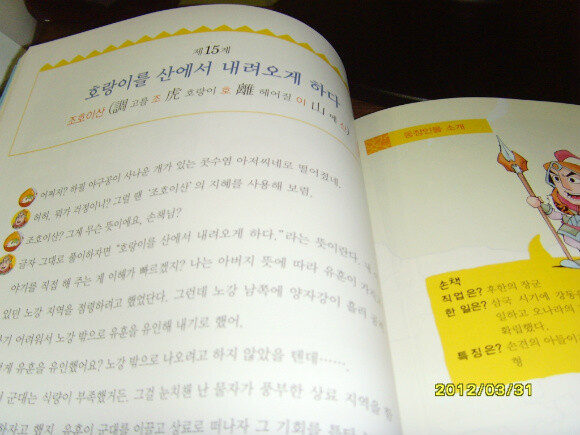 제15계
호랑이를 산에서 내려오게 하다
조호이산 (調 고를 조 虎 호랑이 호 離 헤어질 이 山 메 산)
어쩌지? 하필 야구공이 사나운 개가 있는 콧수염 아저씨네로 떨어졌네.
허허, 뭐가 걱정이니? 그럴 땐 '조호이산'의 지혜를 사용해 보렴.
조호이산? 그게 무슨 뜻이에요, 손책님?
글자 그대로 풀이하자면 "호랑이를 산에서 내려오게 하다."라는 뜻이란다.
야기를 직접 해 주는 게 이해가 빠르겠지? 나는 아버지 뜻에 따라 유훈이
있던 노강 지역을 점령하려고 했었단다. 그런데 노강 남쪽에 양자강이 흘러
기 어려워서 노강 밖으로 유훈을 유인해 내기로 했어.
게 유훈을 유인했어요? 노강 밖으로 나오려고 하지 않았을 텐데…….
군대는 식량이 부족했거든. 그걸 눈치챈 난 물자가 풍부한 상료 지역을
하자고 했지. 유훈이 군대를 이끌고 상료로 떠나자 그 기회를
등장인물 소개
손책
직업은? 후한의 장군
한 일은? 삼국 시기에 강동을
일하고 오나라의
확립했다.
특징은? 손견의 아들이
형
2012/03/31